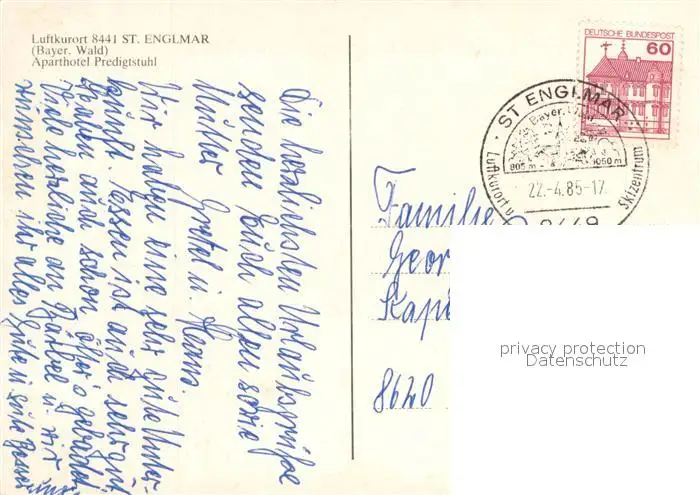 Luftkurort 8441 ST. ENGLMAR
(Bayer. Wald)
Aparthotel Predigtstuhl
Die herzlichsten Urlaubsgrüße
senden Euch allen sowie
Mutter Gretel u. Hans.
Wir haben eine sehr gute Unter-
kunft. Essen ist auch sehr gut
waren auch schon öfter gebadet
Viele herzliche an Bärbel u. wir
wünschen ihr alles Gute u. gute Besser-
ung
DEUTSCHE BUNDESPOST
60
ST ENGLMAR
Bayer. Wald
805 m - 1050 m
22.-4.85-17
8449
Luftkurort u. Skizentrum
Familie
Geor
Kapi
8620
privacy protection
Datenschutz